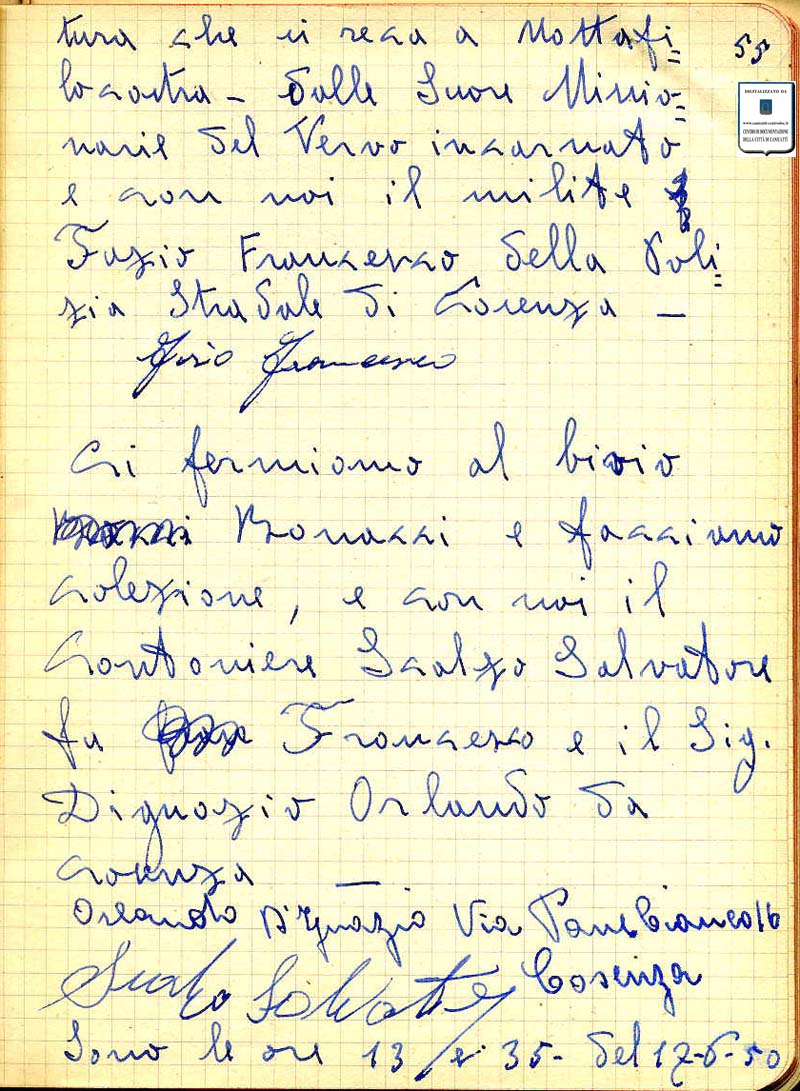 55
tura che si reca a Mottafi=
locastra - dalle Suore Missio=
narie del Vervo incarnato
e con noi il milite
Fazio Francesco della Poli=
zia Stradale di Cosenza -
Fazio Francesco
DIGITALIZZATO DA
CENTRO DI DOCUMENTAZIONE
DELLA CITTÀ DI CANICATTÌ
Ci fermiamo al bivio
Bonacci e facciamo
colezione, e con noi il
Cantoniere Scalzo Salvatore
fu Francesco e il Sig.
Dignazio Orlando da
Cosenza -
Orlando D'Ignazio Via Panebianco 16
Cosenza
Scalzo Salvatore
Sono le ore 13 e 35- del 17-6-50